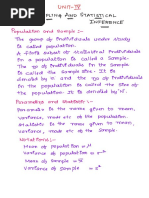 UNIT-IV
SAMPLING AND STATISTICAL
INFERENCE
Population and Sample :-
The group of individuals under study
is called population.
A finite subset of statistical individuals
in a population is called Sample.
The no of individuals in the Sample
is called the Sample size. It is
denoted by n. The no of individuals in
the population is called the size of
the population. It is denoted by N.
Parameters and Statistics :-
Parameter is the name given to mean,
variance, mode etc of the population.
Statistic is the name given to mean,
variance, mode etc of the Sample.
Notations :-
Mean of population = μ
Variance of population = σ²
Mean of Sample = x̄
Variance of Sample = s²